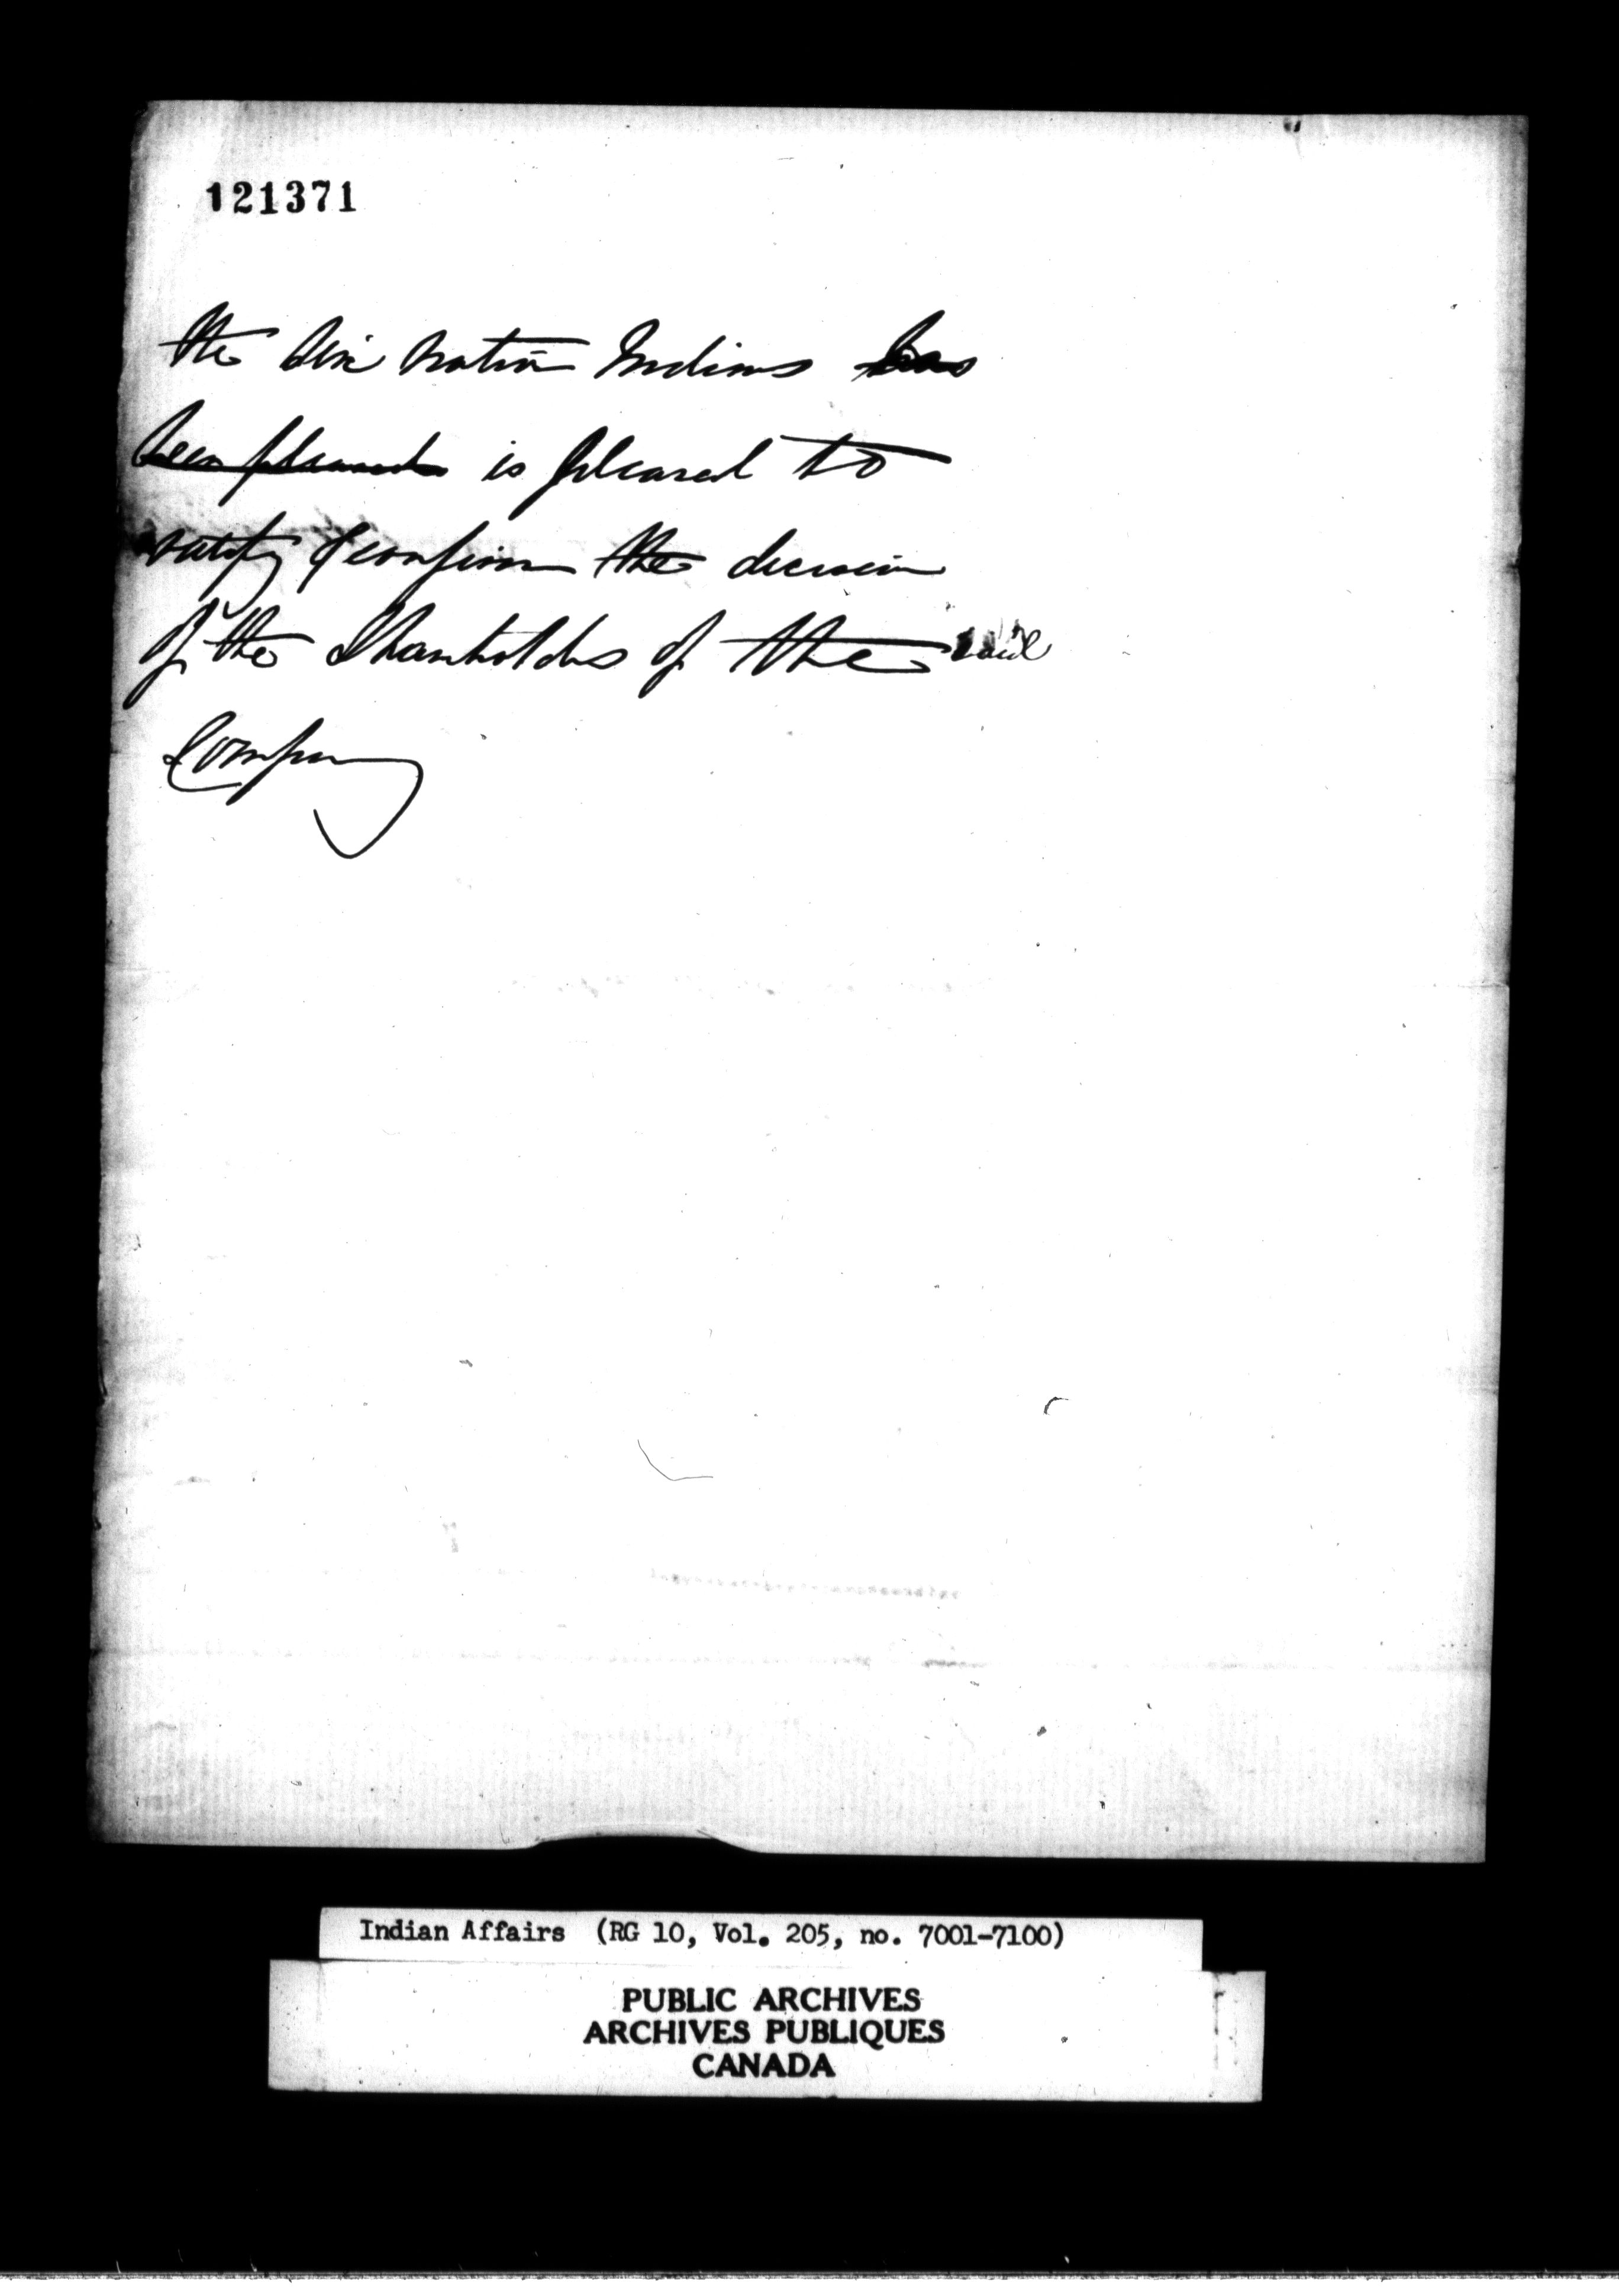 121371
the Six Nation Indians has
been pleased is pleased to
ratify & confirm the decision
of the Shareholders of the said
Company
Indian Affairs (RG 10, Vol. 205, no. 7001-7100)
PUBLIC ARCHIVES
ARCHIVES PUBLIQUES
CANADA